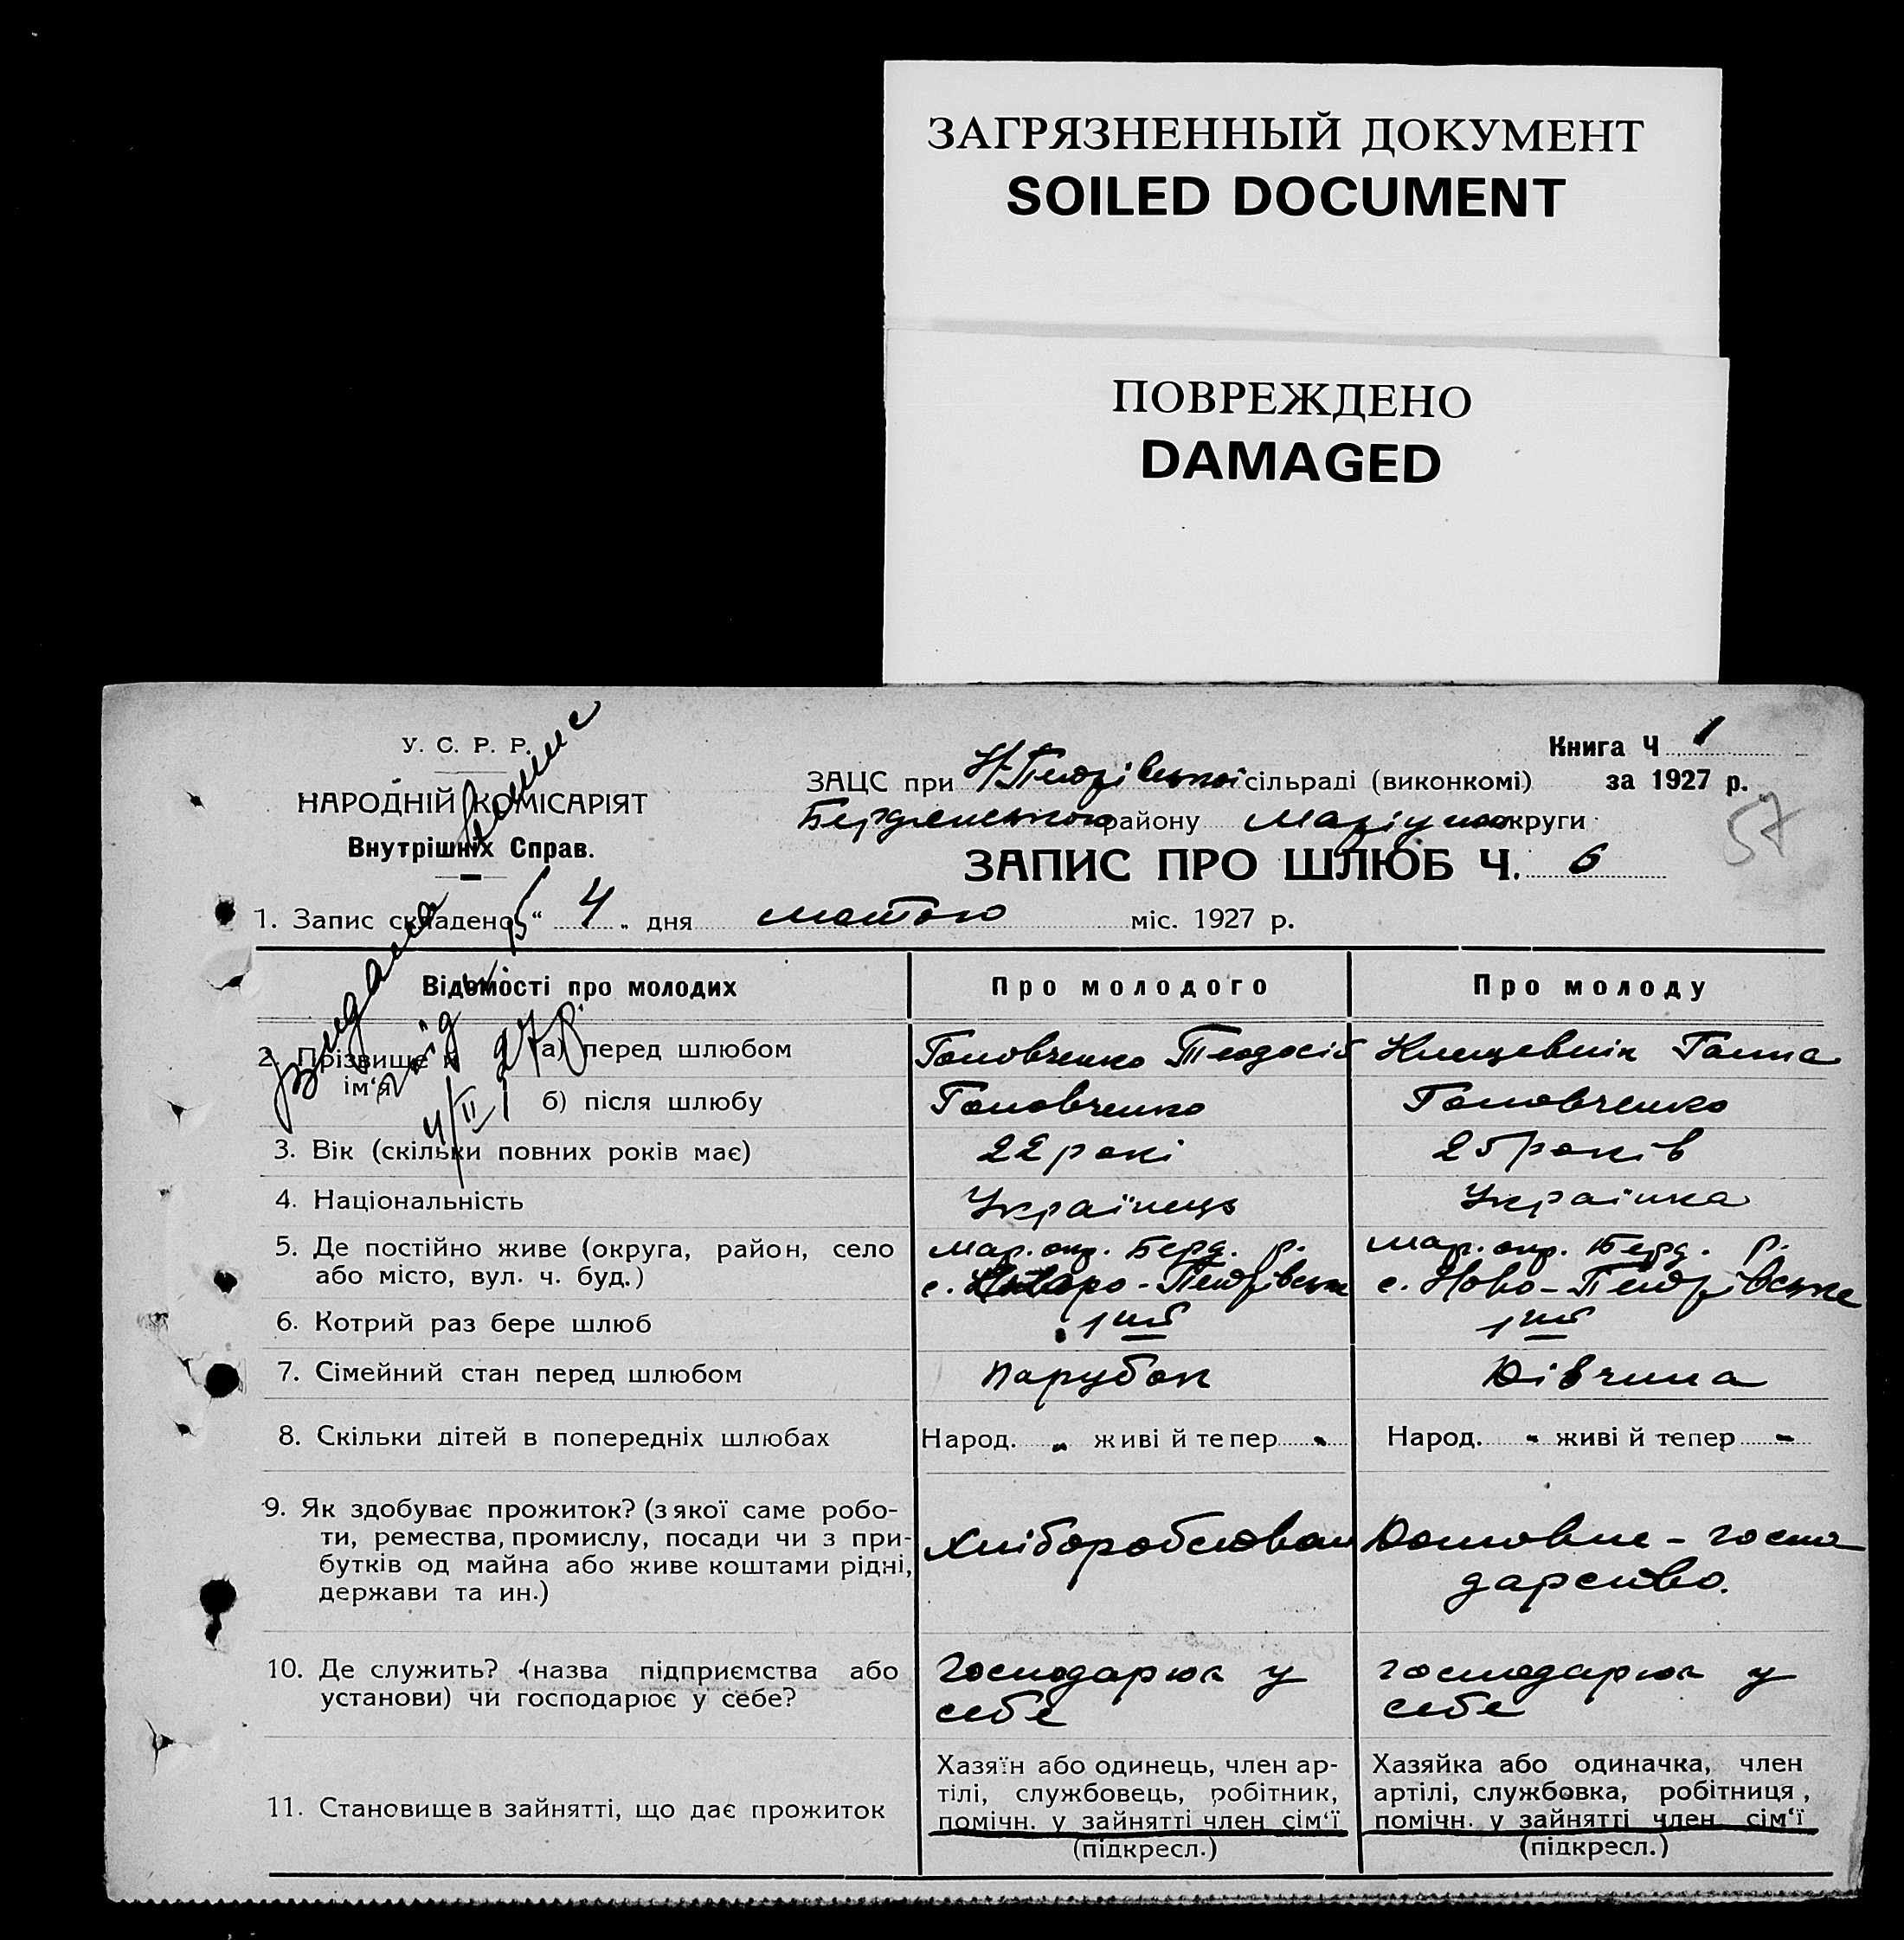 ЗАГРЯЗНЕННЫЙ ДОКУМЕНТ
SOILED DOCUMENT
ПОВРЕЖДЕНО
DAMAGED
У. С. Р. Р.
НАРОДНІЙ КОМІСАРІЯТ
Внутрішніх Справ.
Книга Ч 1
за 1927 р.
ЗАЦС при Н-Петрівській сільраді (виконкомі)
Бердянського району Маріуп округи
57
ЗАПИС ПРО ШЛЮБ Ч. 6
1. Запис складено „ 4 " дня лютого міс. 1927 р.
Видана
4/II 27 р.
Відомості про молодих
Про молодого
Про молоду
2. Прізвище й ім'я
а) перед шлюбом
Головченко Теодосій
Клещевнік Ганна
б) після шлюбу
Головченко
Головченко
3. Вік (скільки повних років має)
22 рокі
25 років
4. Національність
Українець
Українка
5. Де постійно живе (округа, район, село
або місто, вул. ч. буд.)
Мар. окр. Берд. р.
Петрівське
Мар. окр. Берд. р.
с. Ново-Петрівське
6. Котрий раз бере шлюб
1ий
1ий
7. Сімейний стан перед шлюбом
Парубок
Дівчина
8. Скільки дітей в попередніх шлюбах
Народ. - живі й тепер -
Народ. - живі й тепер -
9. Як здобуває прожиток? (з якої саме робо-
ти, ремества, промислу, посади чи з при-
бутків од майна або живе коштами рідні,
держави та ин.)
Хліборобством
Домовне - госпо
дарство.
10. Де служить? (назва підприємства або
установи) чи господарює у себе?
господарює у
себе
господарює у
себе
11. Становище в зайнятті, що дає прожиток
Хазяїн або одинець, член ар-
тілі, службовець, робітник,
помічн. у зайнятті член сім'ї
(підкресл.)
Хазяйка або одиначка, член
артілі, службовка, робітниця,
помічн. у зайнятті член сім'ї
(підкресл.)